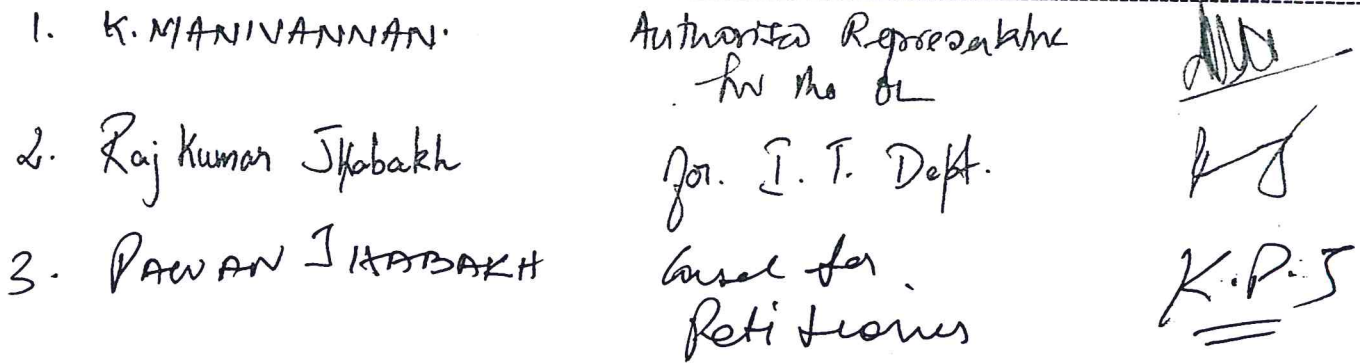 1. K. MANIVANNAN. Authorised Representative
for the OL
2. Raj Kumar Jhabakh for. I. T. Dept.
3. PAWAN JHABAKH Counsel for K.P.J
Petitioners